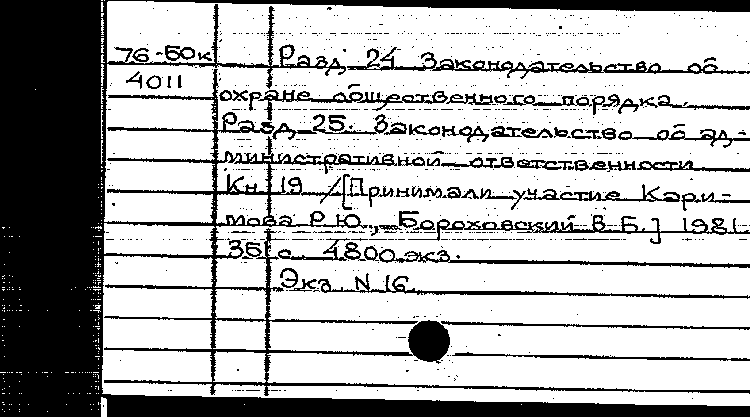 76-50к Разд. 24 Законодательство об
4011
охране общественного порядка.
Разд. 25. Законодательство об ад-
министративной ответственности
Кн 19 /[Принимали участие Кари-
мова Р.Ю., Бороховский В.Б.] 1981
351 с. 4800 экз.
Экз. N 16.